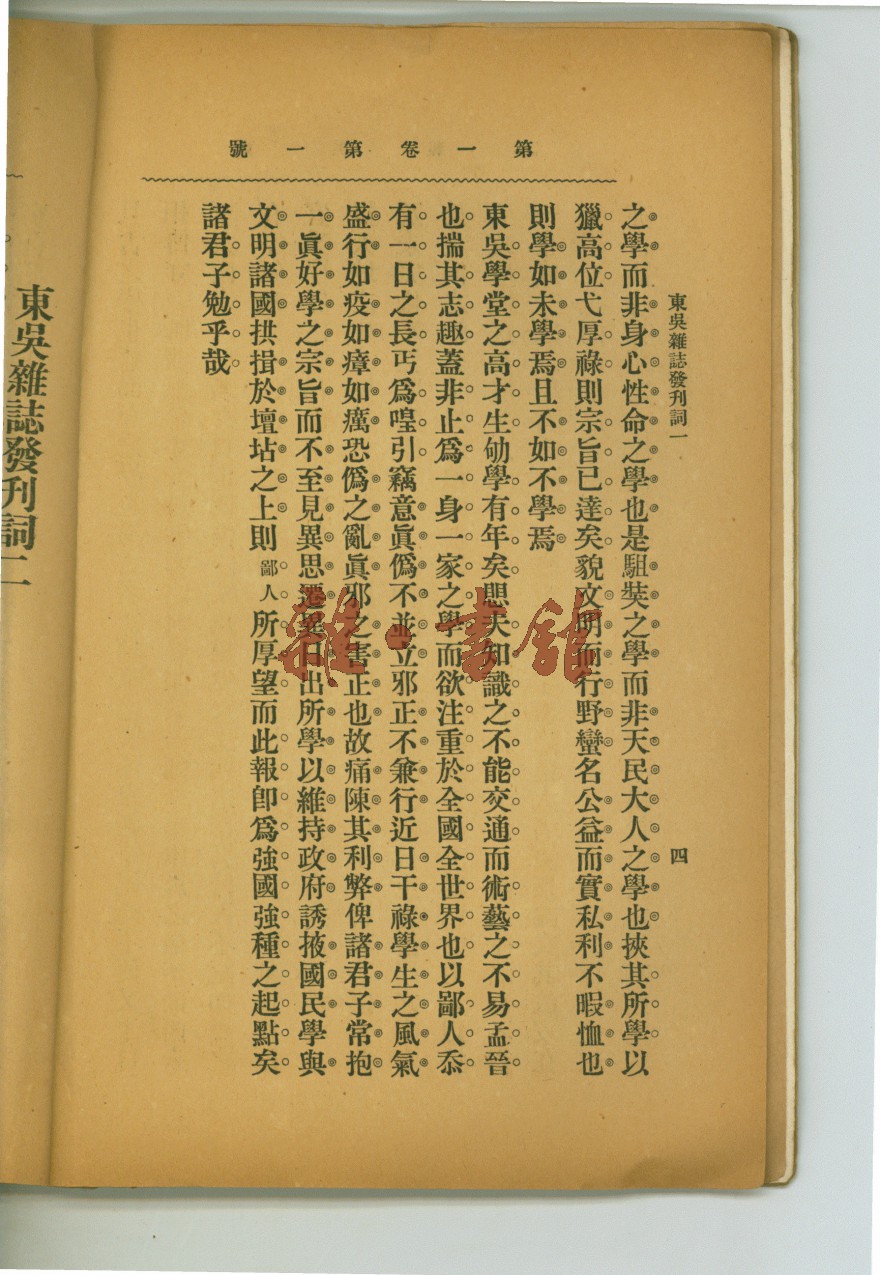 第一卷第一號
東吳雜誌發刊詞一
四
之學而非身心性命之學也是駔奘之學而非天民大人之學也挾其所學以
獵高位弋厚祿則宗旨已達矣貌文明而行野蠻名公益而實私利不暇恤也
則學如未學焉且不如不學焉
東吳學堂之高才生劬學有年矣思夫知識之不能交通而術藝之不易孟晉
也揣其志趣蓋非止爲一身一家之學而欲注重於全國全世界也以鄙人忝
有一日之長丐爲喤引竊意眞僞不並立邪正不兼行近日干祿學生之風氣
盛行如疫如瘴如癘恐僞之亂眞邪之害正也故痛陳其利弊俾諸君子常抱
一眞好學之宗旨而不至見異思遷異日出所學以維持政府誘掖國民學與
文明諸國拱揖於壇坫之上則鄙人所厚望而此報卽爲強國強種之起點矣
諸君子勉乎哉
東吳雜誌發刊詞二
雜·書館